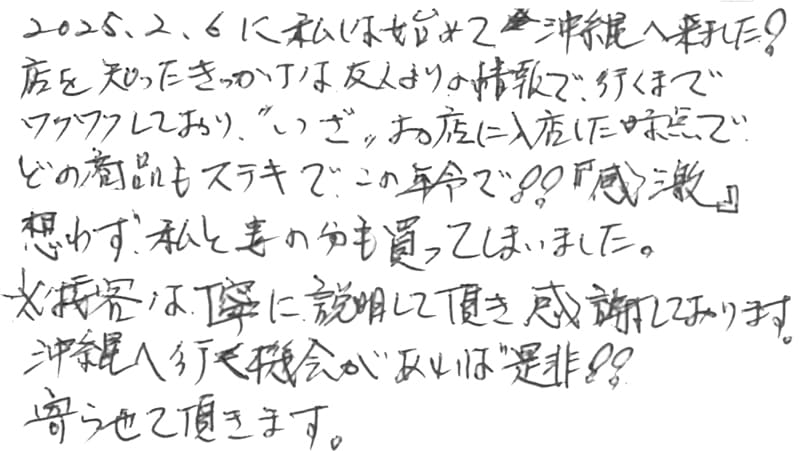 2025、2、6に私は始めて沖縄へ来ました!
店を知ったきっかけは友人よりの情報で、行くまで
ワクワクしており、"いざ〟お店に入店した時点で
どの商品もステキで、この年令で!!『感激』
想わず、私と妻の分も買ってしまいました。
又接客は丁寧に説明して頂き感謝しております。
沖縄へ行く機会があれば是非!!
寄らせて頂きます。